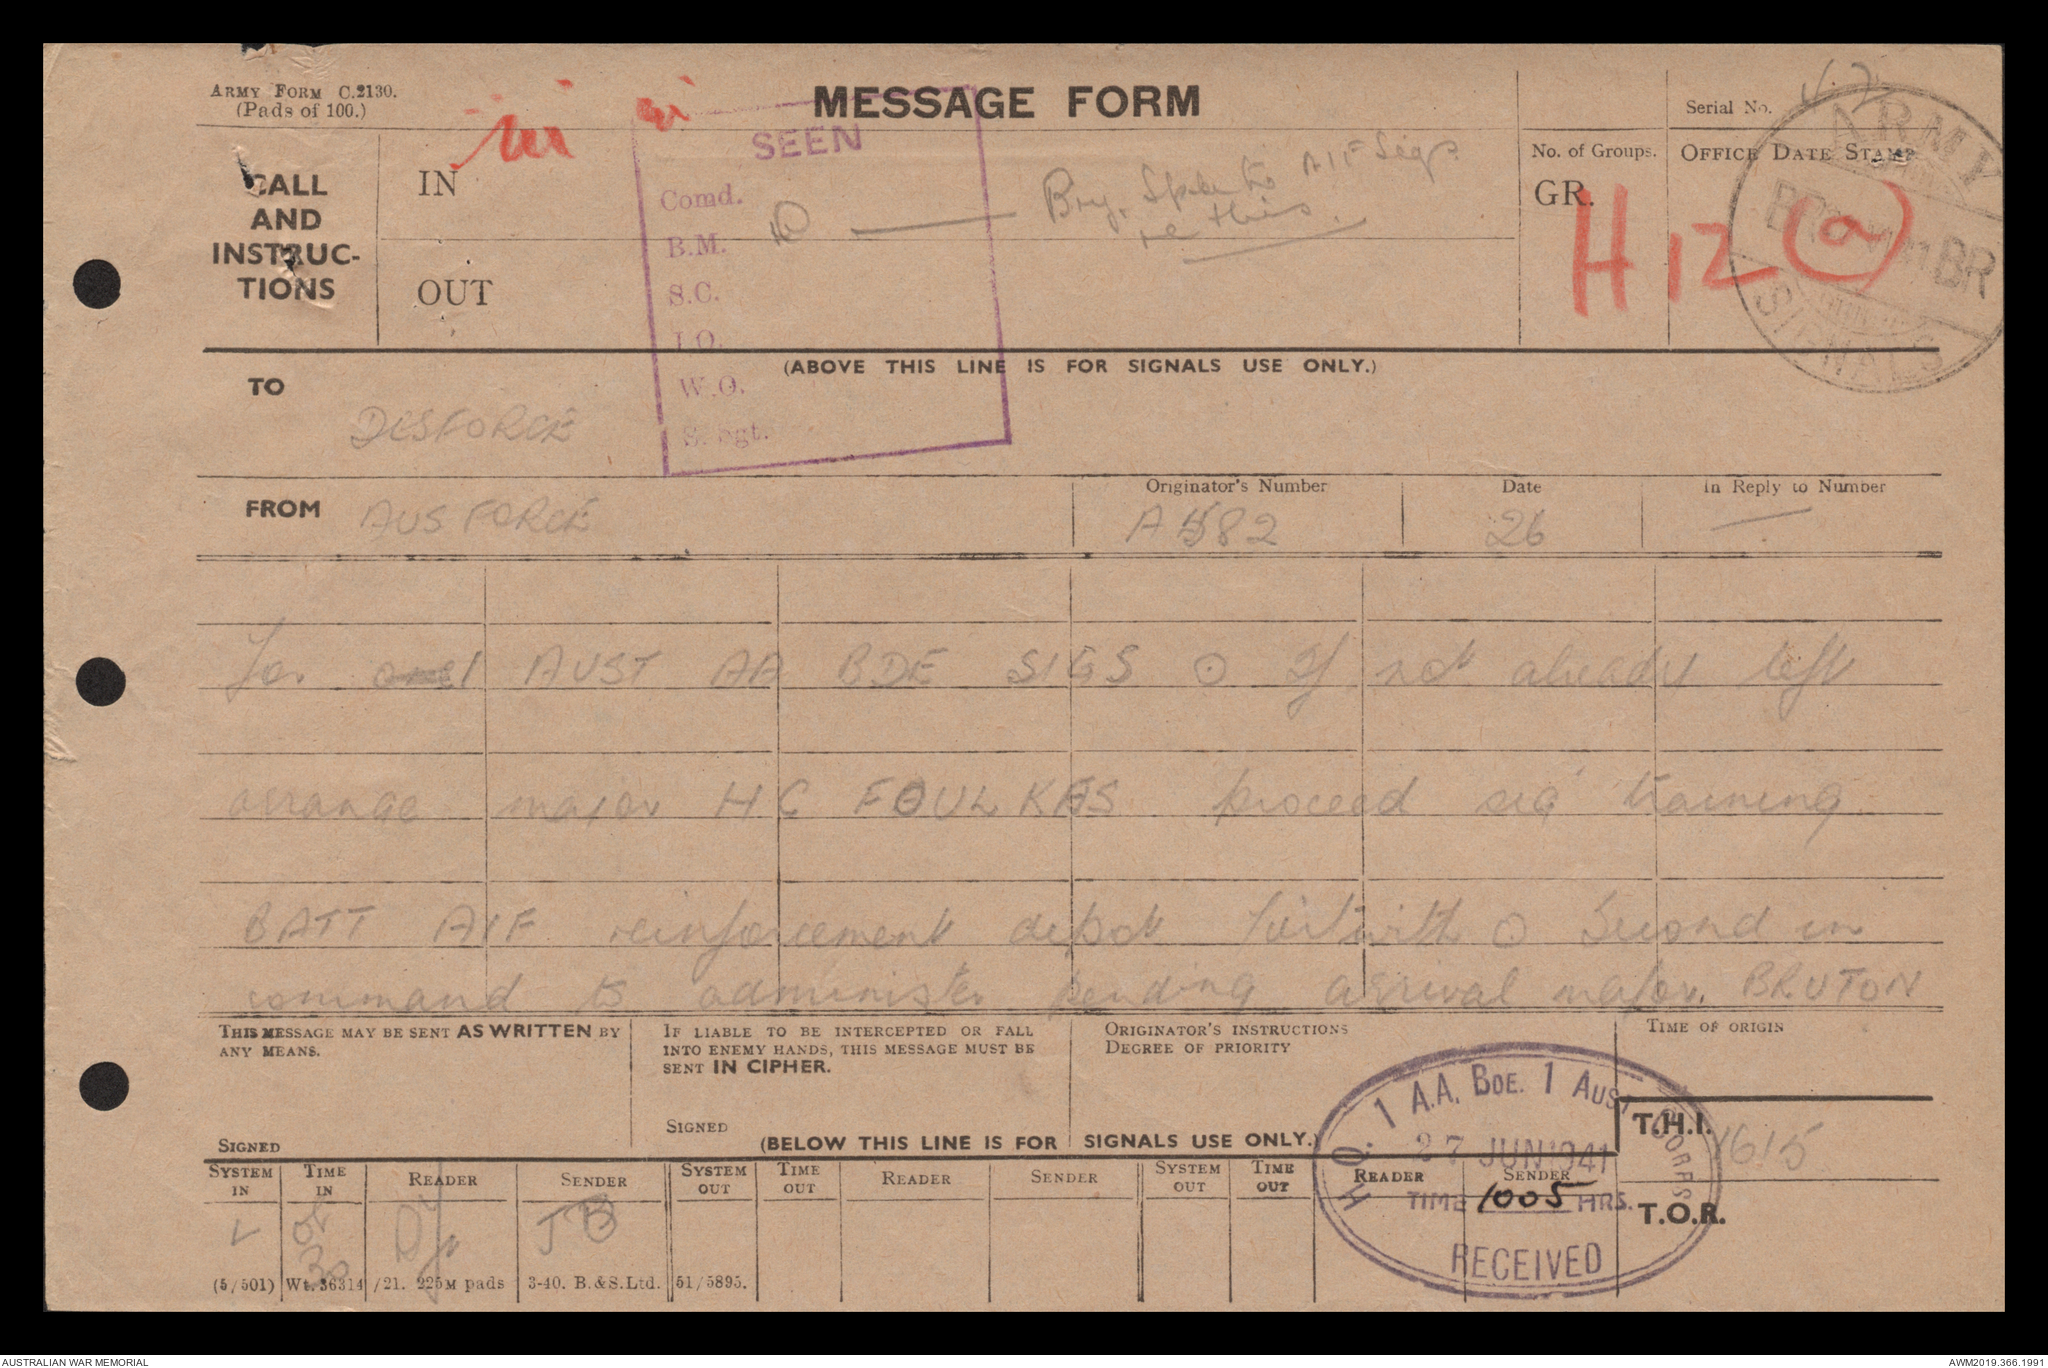 ARMY FORM C.2130.
(Pads of 100.)
MESSAGE FORM
Serial No.
CALL
AND
INSTRUC-
TIONS
IN
OUT
No. of Groups.
GR.
OFFICE DATE STAMP
H12 (a)
SEEN
Comd.
B.M.
S.C.
I.O.
W.O.
S. Sgt.
Brig. Spoke to AIF Sigs
re this.
ARMY
BR
SIGNALS
(ABOVE THIS LINE IS FOR SIGNALS USE ONLY.)
TO
DESFORCE
FROM AUSFORCE
Originator's Number
A582
Date
26
In Reply to Number
—
for 1 AUST AA BDE SIGS O If not already left
arrange major H C FOULKES proceed sig training
BATT AIF reinforcement depot fortwith O Second in
command to administer pending arrival major. BRUTON
THIS MESSAGE MAY BE SENT AS WRITTEN BY
ANY MEANS.
SIGNED
IF LIABLE TO BE INTERCEPTED OR FALL
INTO ENEMY HANDS, THIS MESSAGE MUST BE
SENT IN CIPHER.
SIGNED
ORIGINATOR'S INSTRUCTIONS
DEGREE OF PRIORITY
TIME OF ORIGIN
(BELOW THIS LINE IS FOR SIGNALS USE ONLY.)
T.H.I. 1615
T.O.R.
H.Q. 1 A.A. BDE. 1 AUST. CORPS
27 JUN 1941
TIME 1005 HRS.
RECEIVED
SYSTEM IN
TIME IN
READER
SENDER
SYSTEM OUT
TIME OUT
READER
SENDER
SYSTEM OUT
TIME OUT
READER
SENDER
JB
(5/501) Wt. 36314/21. 225M pads 3-40. B.&S.Ltd. 51/5895.
AUSTRALIAN WAR MEMORIAL
AWM2019.366.1991